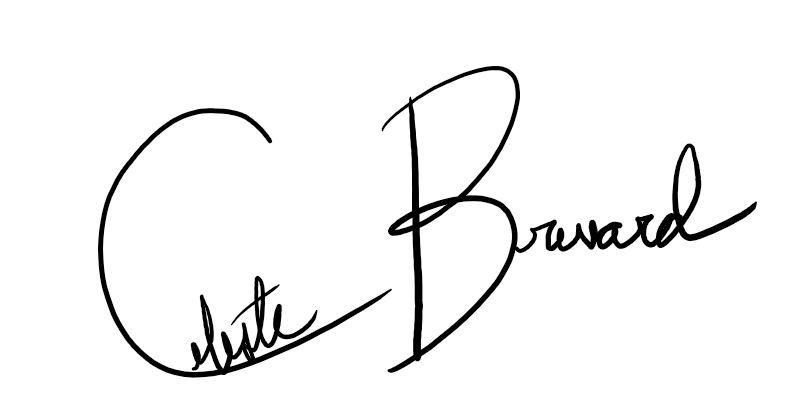 Celeste Brevard